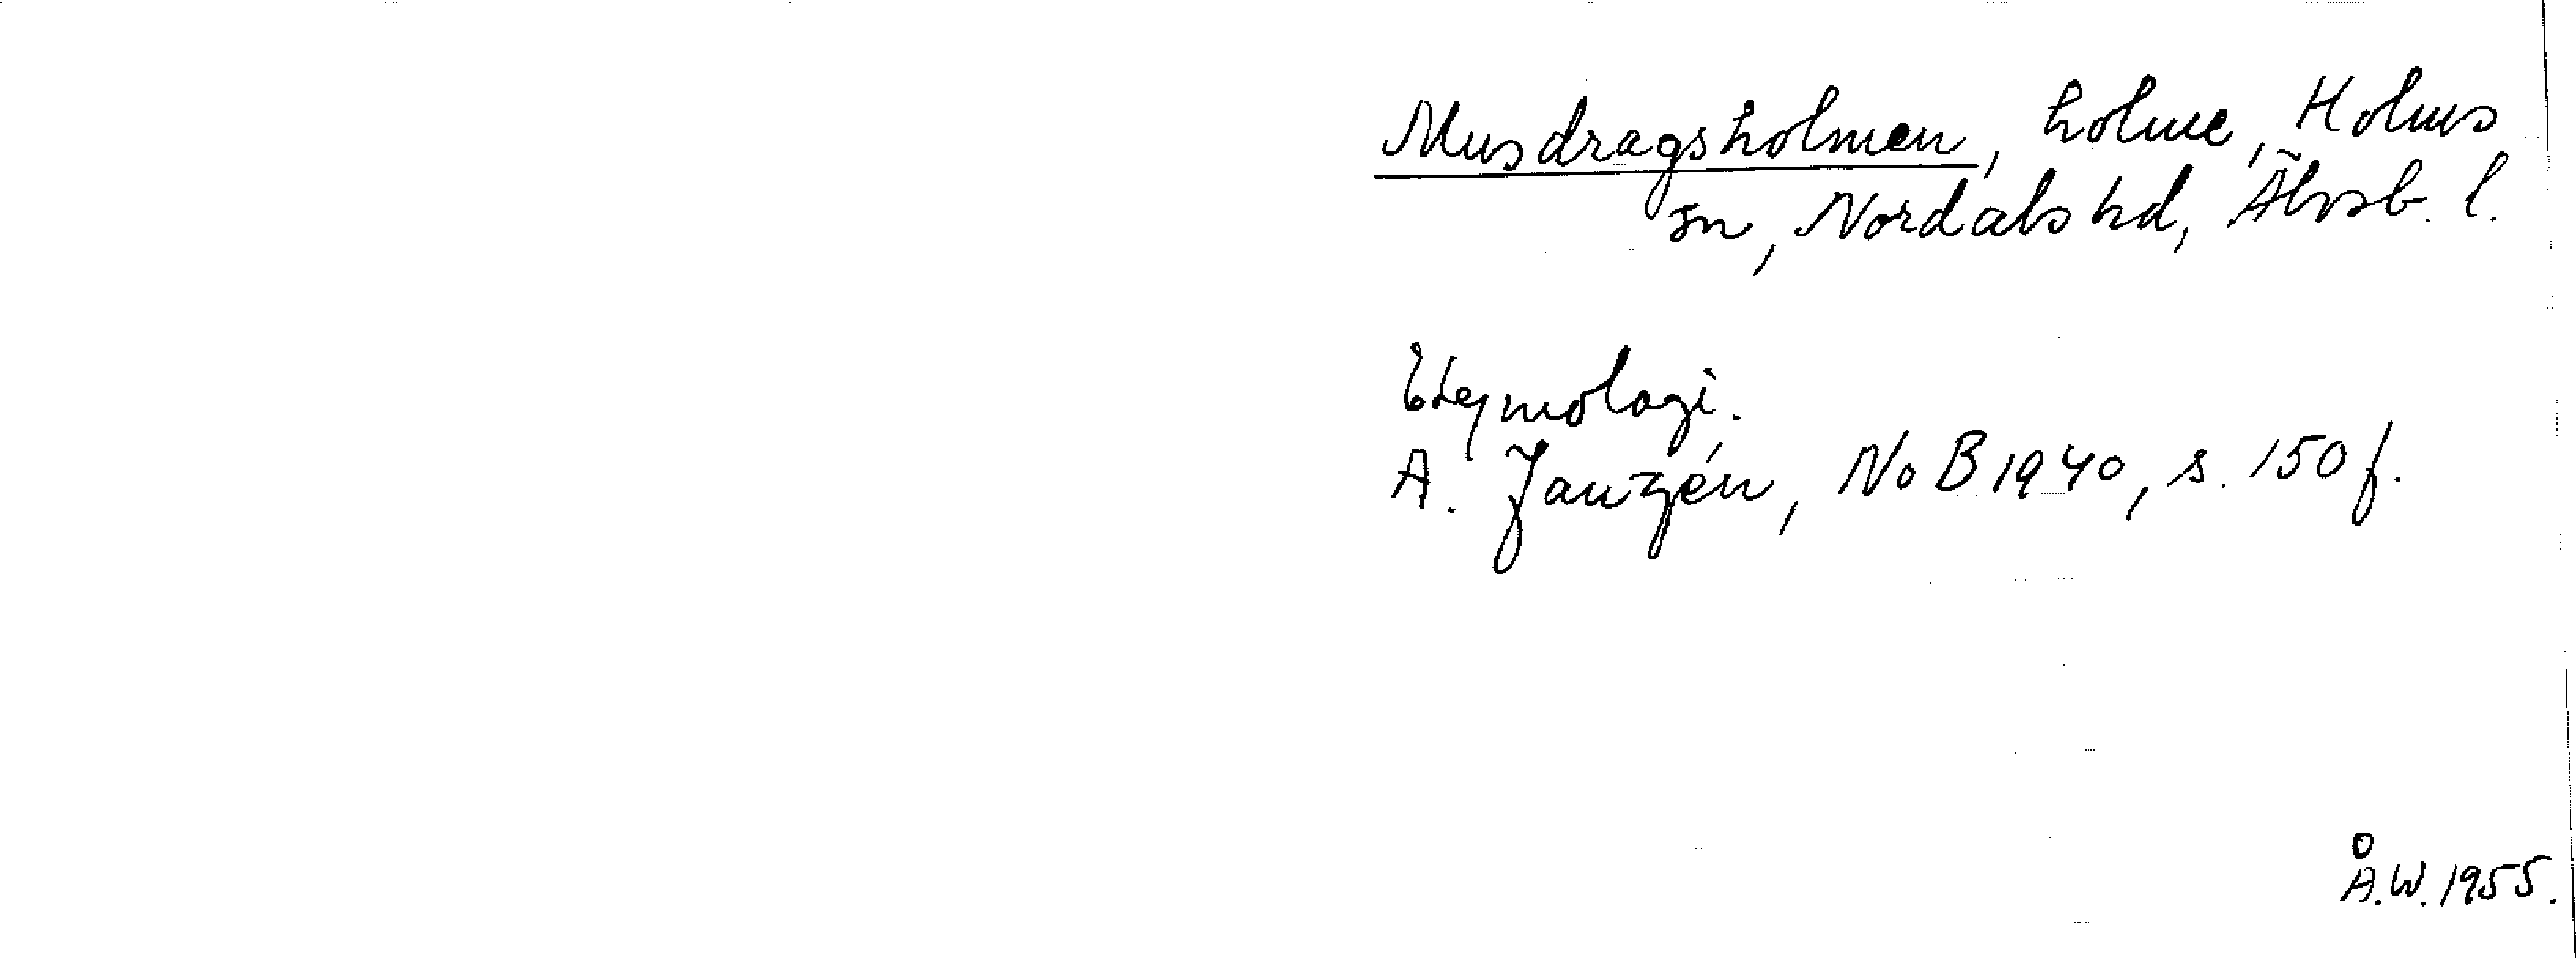 Musdragsholmen, holme, Holms
sn, Nordals hd, Älvsb. l.
Etymologi.
A. Janzén, NoB 1940, s. 150 f.
Å.W. 1955.